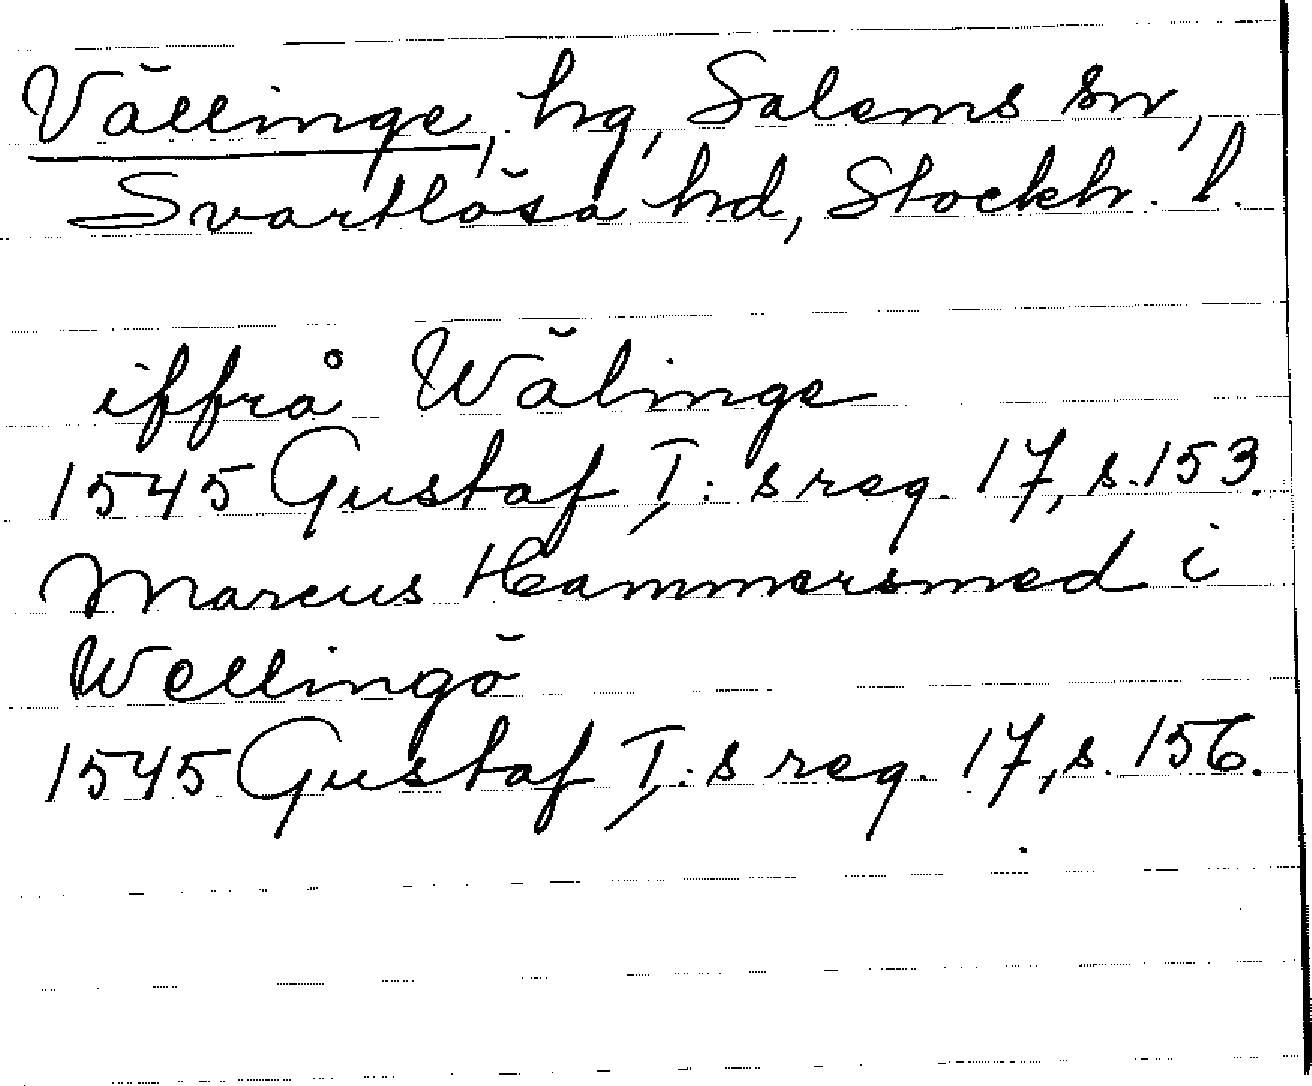 Vällinge, hg, Salems sn,
Svartlösa hd, Stockh. l.
iffrå Wälinge
1545 Gustaf I:s reg. 17, s. 153.
Marcus Hammersmed i
Wellingö
1545 Gustaf I:s reg. 17, s. 156.